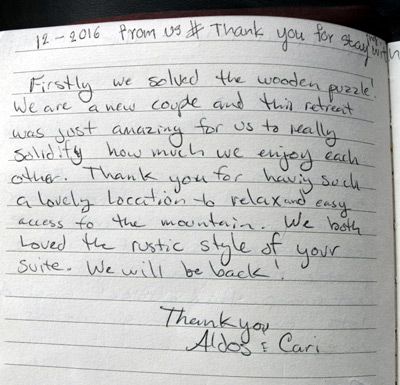 12-2016 From us # Thank you for staying with
Firstly we solved the wooden puzzle!
We are a new couple and this retreat
was just amazing for us to really
Solidify how much we enjoy each
other. Thank you for having such
a lovely Location to relax and easy
access to the mountain. We both
Loved the rustic style of your
suite. We will be back!
Thank you
Aldos & Cari